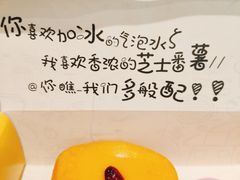 你喜欢加冰的气泡水
我喜欢香浓的芝士番薯//
@你瞧_我们多般配!!